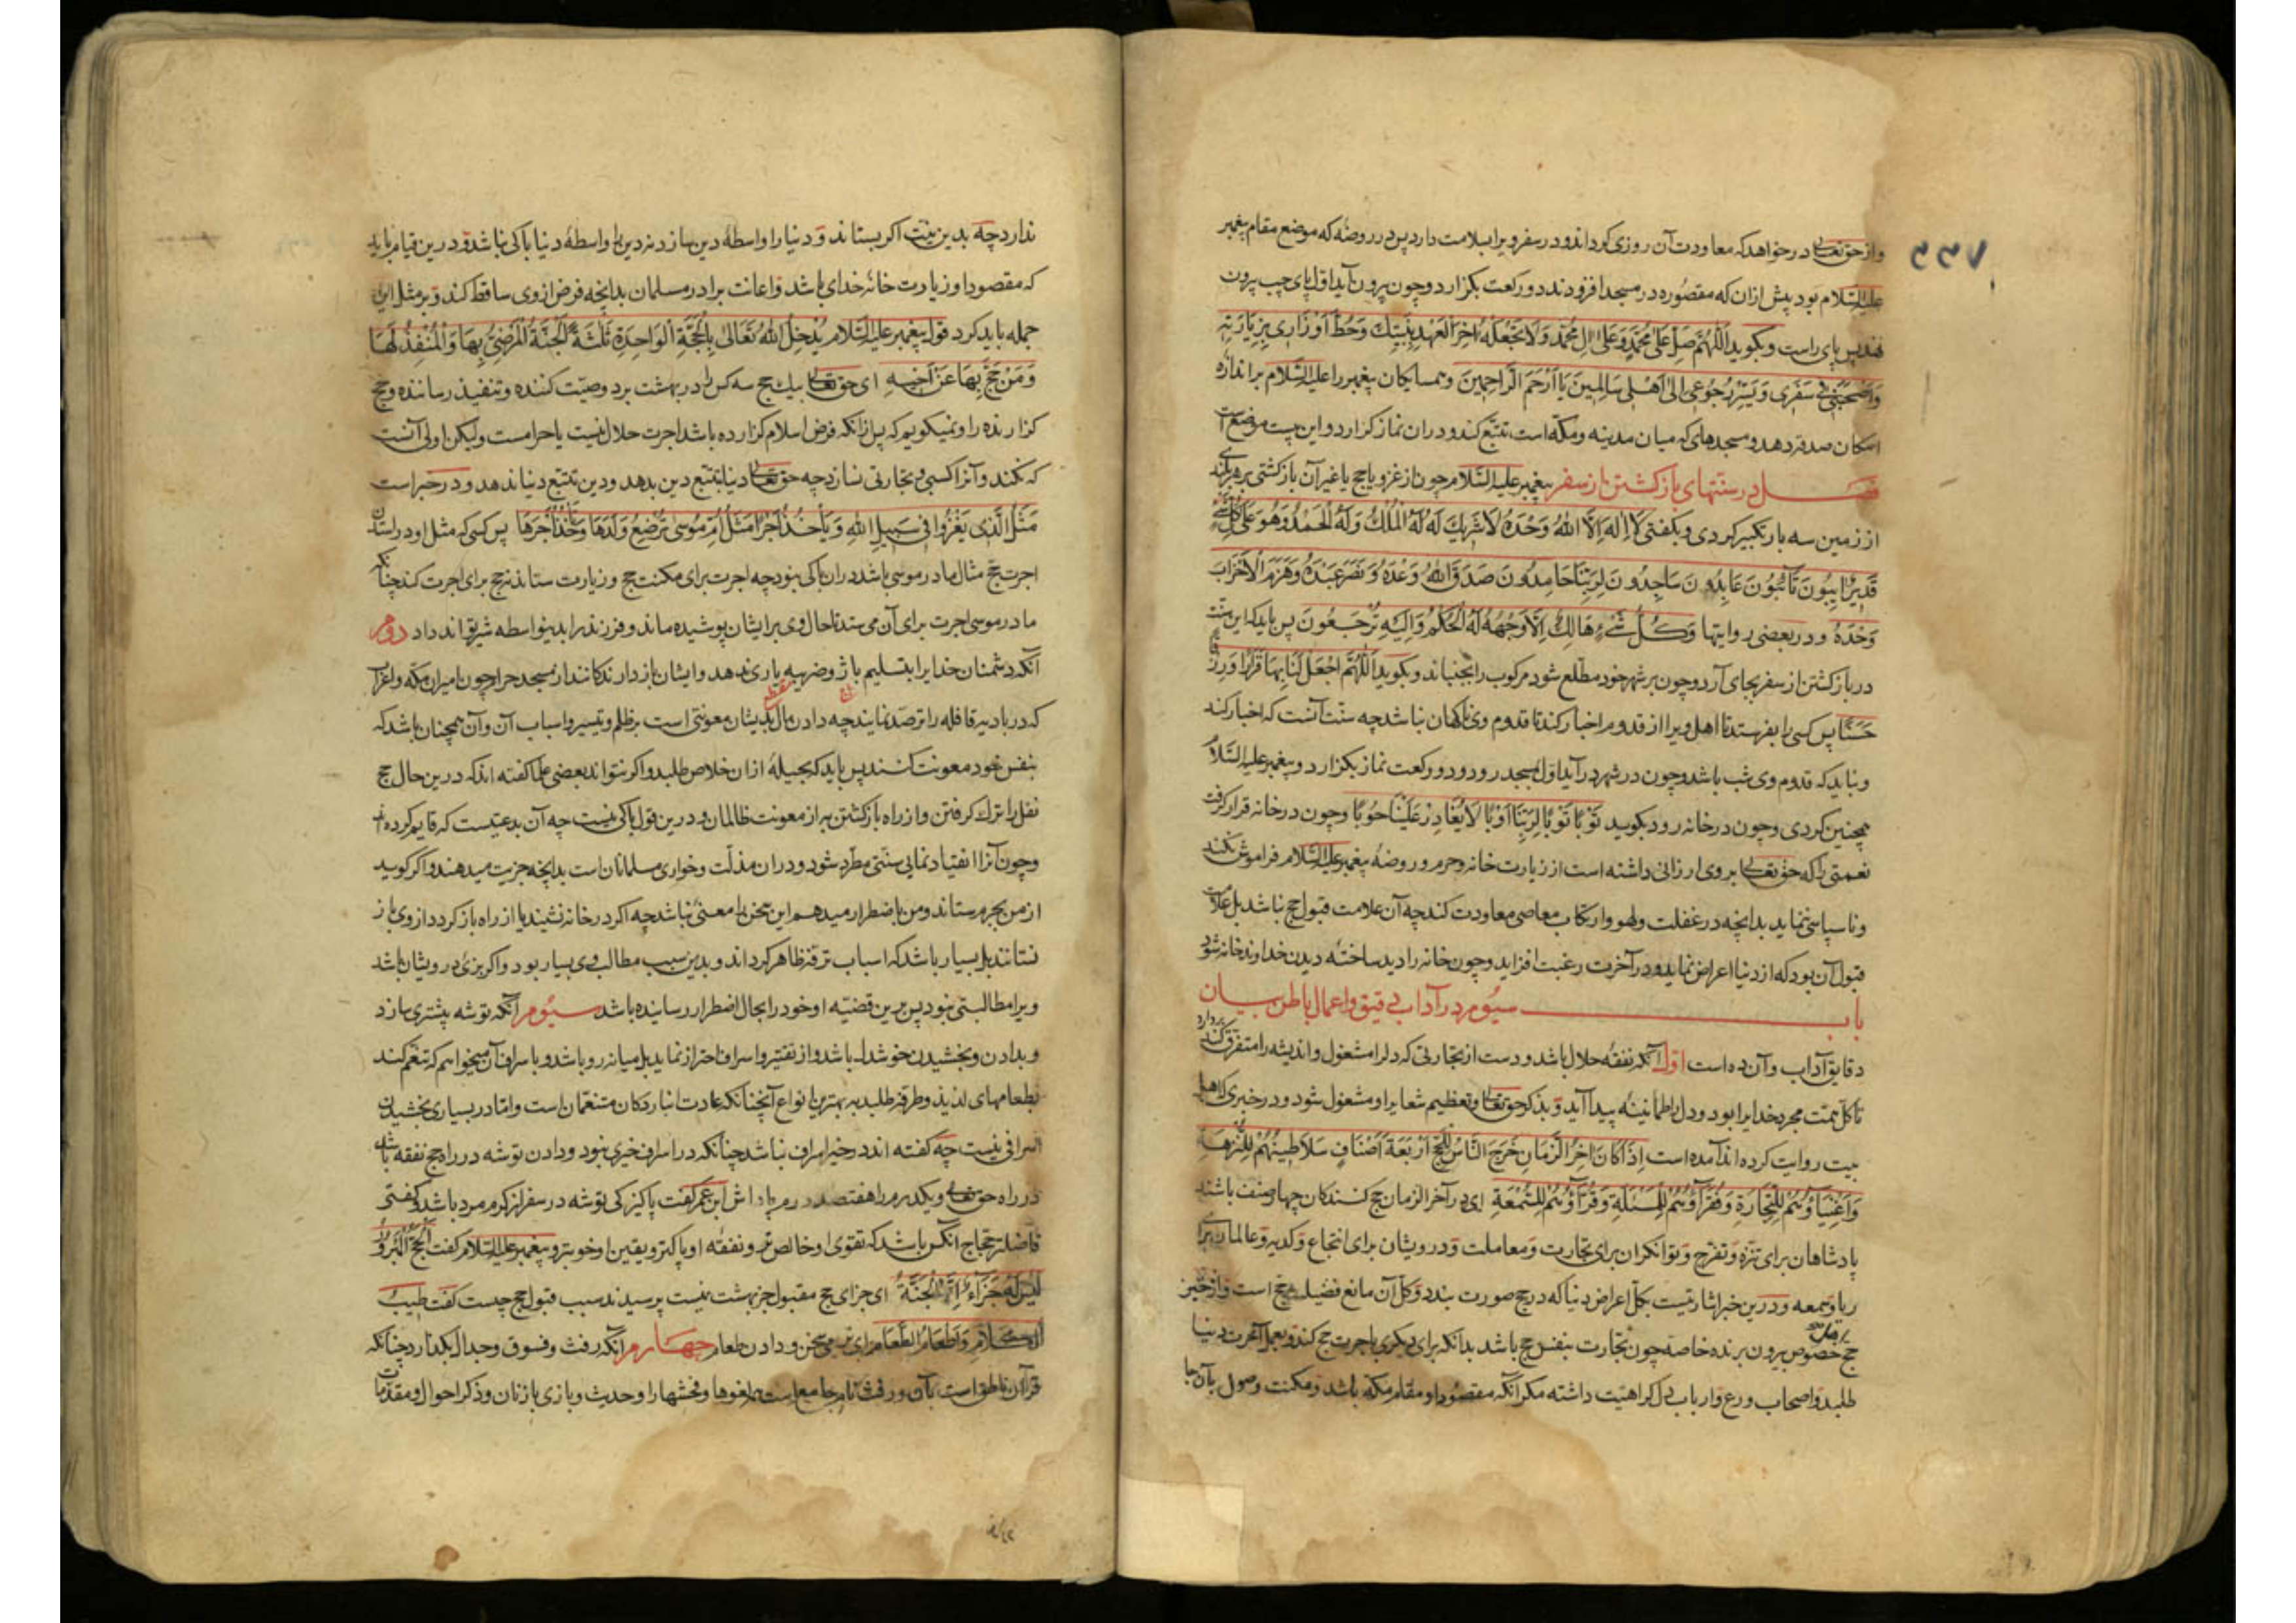 ۷۳۳
واز حق تعالی درخواهد که معاودت آن روزی کرداند و در سفر ویرا سلامت دارد پس در روضه که موضع مقام پیغمبر
علیه السلام بود پیش ازان که مقصوره در مسجد افزودند دو رکعت بکزارد و چون بیرون آید اول پای چپ بیرون
نهد پس پای راست و بکوید اَللّٰهُمَّ صَلِّ عَلیٰ مُحَمَّدٍ وَعَلیٰ اٰلِ مُحَمَّد وَلَا تَجْعَلْهُ اٰخِرَ الْعَهْدِ بِنَبِیِّكَ وَحُطَّ اَوْزَارِی بِزِیَارَتِهِ
وَاَصْحِبْنِی فِی سَفَرِی وَیَسِّرْ رُجُوعِی اِلیٰ اَهْلِی سَالِمِینَ یَا اَرْحَمَ الرَّاحِمِینَ وهمسایکان پیغمبر را علیه السلام براندازه
امکان صدقه دهد و مسجدهای که میان مدینه و مکه است تتبّع کند و دران نماز کزارد و این بیست موضع است
فصل در سنتهای بازکشتن از سفر پیغمبر علیه السلام چون از غزو یا حج یا غیر آن بازکشتی بر هر بلندی
از زمین سه بار تکبیر کردی و بکفتی لَا اِلٰهَ اِلَّا اللهُ وَحْدَهُ لَاشَرِیكَ لَهُ لَهُ الْمُلْكُ وَلَهُ الْحَمْدُ وَهُوَ عَلیٰ کُلِّ شَیْءٍ
قَدِیرٌ اٰیِبُونَ تَائِبُونَ عَابِدُونَ سَاجِدُونَ لِرَبِّنَا حَامِدُونَ صَدَقَ اللهُ وَعْدَهُ وَنَصَرَ عَبْدَهُ وَهَزَمَ الْاَحْزَابَ
وَحْدَهُ ودر بعضی روایتها وَکُلُّ شَیْءٍ هَالِكٌ اِلَّا وَجْهَهُ لَهُ الْحُکْمُ وَاِلَیْهِ تُرْجَعُونَ پس باید که این سنّت
در بازکشتن از سفر بجای آرد و چون بر شهر خود مطّلع شود مرکوب را بجنباند و بکوید اَللّٰهُمَّ اجْعَلْ لَنَا بِهَا قَرَارًا وَرِزْقًا
حَسَنًا پس کسی را بفرستد تا اهل ویرا از قدوم اخبار کند تا قدوم وی ناکهان نباشد چه سنّت آنست که اخبار کند
ونباید که قدوم وی شب باشد و چون در شهر درآید اوّل بمسجد رود و دو رکعت نماز بکزارد و پیغمبر علیه السلام
همچنین کردی و چون در خانه رود بکوید تَوْبًا تَوْبًا لِرَبِّنَا اَوْبًا لَا یُغَادِرُ عَلَیْنَا حَوْبًا وچون در خانه قرار کرفت
نعمتی را که حق تعالی بر وی ارزانی داشته است از زیارت خانه و حرم و روضهٔ پیغمبر علیه السلام فراموش نکند
وناسپاسی ننماید بدانچه در غفلت ولهو وارتکاب معاصی معاودت کند چه آن علامت قبول حج نباشد بل علامت
قبول آن بود که از دنیا اعراض نماید و در آخرت رغبت افزاید و چون خانه را دید ساخته دیدن خداوند خانه شود
باب سیوم در آداب دقیق واعمال باطن بیان
دقایق آداب وآن ده است اوّل آنکه نفقه حلال باشد و دست از تجارتی که دل را مشغول و اندیشه را متفرّق کند بردارد
تا کلّ همّت مجرد خدایرا بود و دل را طمانینه پیدا آید و بذکر حق تعالی وتعظیم شعایر او مشغول شود و در خبری که اهل
بیت روایت کرده اند آمده است اِذَا کَانَ اٰخِرُ الزَّمَانِ خَرَجَ النَّاسُ لِلْحَجِّ اَرْبَعَةَ اَصْنَافٍ سَلَاطِینُهُمْ لِلنُّزْهَةِ
وَاَغْنِیَاؤُهُمْ لِلتِّجَارَةِ وَفُقَرَاؤُهُمْ لِلْمَسْئَلَةِ وَقُرَّاؤُهُمْ لِلسُّمْعَةِ ای در آخر الزمان حج کنندکان چهار صنف باشند
پادشاهان برای تنزّه وتفرّج وتوانکران برای تجارت ومعاملت ودرویشان برای انتجاع وکدیه وعالمان برای
ریا وسمعه ودرین خبر اشارتیست بکلّ اعراض دنیا که در حج صورت بندد وکلّ آن مانع فضیلت حج است واز حیّز
حج خصوص بیرون برنده خاصه چون تجارت بنفس حج باشد بدانکه برای دیکری باجرت حج کند و بعمل آخرت دنیا
طلبد و اصحاب ورع وارباب دل کراهیّت داشته مکر آنکه مقصود او مقام مکّه باشد و مکنت وصول بآن جا
ندارد چه بدین نیّت اکر بستاند و دنیا را واسطهٔ دین سازد نه دین را واسطهٔ دنیا باکی نباشد و درین قیام باید
که مقصود او زیارت خانهٔ خدای باشد واعانت برادر مسلمان بدانچه فرض ازوی ساقط کند و بر مثل این
جمله باید کرد قول پیغمبر علیه السلام یُدْخِلُ اللهُ تَعَالیٰ بِالْحَجَّةِ الْوَاحِدَةِ ثَلٰثَةً الْجَنَّةَ الْمُوْصِیَ بِهَا وَالْمُنْفِذَ لَهَا
وَمَنْ حَجَّ بِهَا عَنْ اَخِیهِ ای حق تعالی بیك حج سه کس را در بهشت برد وصیّت کننده وتنفیذ رساننده وحج
کزارنده را ونمیکویم که پس ازانکه فرض اسلام کزارده باشد اجرت حلال نیست یا حرامست ولیکن اولی آنست
که نکند وآنرا کسبی وتجارتی نسازد چه حق تعالی دنیا بتتبّع دین بدهد ودین بتتبّع دنیا ندهد ودر خبر است
مَثَلُ الَّذِی یَغْزُوا فِی سَبِیلِ اللهِ وَیَأْخُذُ اَجْرًا مَثَلُ اُمِّ مُوسیٰ تُرْضِعُ وَلَدَهَا وَتَأْخُذُ اَجْرَهَا پس کسی که مثل او در استدن
اجرت حج مثال مادر موسی باشد دران باکی نبود چه اجرت برای مکنت حج وزیارت ستاند نه حج برای اجرت کند چنانکه
مادر موسی اجرت برای آن می ستد تا حال وی برایشان پوشیده ماند وفرزند را بدینواسطه شیر تواند داد دوم
آنکه دشمنان خدایرا بتسلیم باژ وضریبه یاری ندهد وایشان بازدارندکانند از مسجد حرام چون امیران مکّه واعراب
که در بادیه قافله را ترصّد نمایند چه دادن مال بدیشان معونتی است بر ظلم وتیسیر اسباب آن وآن همچنان باشد که
بنفس خود معونت کنند پس باید که بحیلهٔ ازان خلاص طلبد واکر نتواند بعضی علما کفته اند که درین حال حج
نفل را ترك کرفتن واز راه بازکشتن به از معونت ظالمان ودرین قول باکی نیست چه آن بدعتیست که قایم کرده اند
وچون آنرا انقیاد نمایی سنّتی مطّرد شود ودران مذلّت وخواری مسلمانان است بدانچه جزیت میدهند واکر کوید
از من بجبر میستاند ومن باضطرار میدهم این سخن را معنی نباشد چه اکر در خانه نشیند یا از راه بازکردد ازوی باز
نستانند بل بسیار باشد که اسباب ترفّه ظاهر کرداند وبدین سبب مطالب وی بسیار بود واکر بزیّ درویشان باشد
ویرا مطالبتی نبود پس برین قضیّه او خود را بحال اضطرار رسانیده باشد سیوم آنکه توشه بیشتری سازد
وبدادن وبخشیدن خوشدل باشد واز تقتیر واسراف احتراز نماید بل میانه رو باشد وباسراف آن میخواهم که تنعّم کند
بطعامهای لذیذ وطرفه طلبد به بهترین انواع آنچنانکه عادت انباردکان متنعّمان است وامّا در بسیاری بخشیدن
اسرافی نیست چه کفته اند در خیر اسراف نباشد چنانکه در اسراف خیری نبود ودادن توشه در راه حج نفقه باشد
در راه حق تعالی ویکدرم را هفتصد درم پاداش ابن عمر کفت پاکیزکی توشه در سفر از کرم مرد باشد وکفتی
فاضلتر حجاج آنکس باشد که تقوی او خالص تر ونفقه او پاکتر ویقین او خوبتر وپیغمبر علیه السلام کفت اَلْحَجُّ الْمَبْرُورُ
لَیْسَ لَهُ جَزَاءٌ اِلَّا الْجَنَّةُ ای جزای حج مقبول جز بهشت نیست پرسیدند سبب قبول حج چیست کفت طِیبُ
الْکَلَامِ وَاِطْعَامُ الطَّعَامِ ای نرمی سخن ودادن طعام چهارم آنکه رفث وفسوق وجدال بکذارد چنانکه
قرآن ناطق است بآن ورفث نام جامع است لغوها وفحشها را وحدیث وبازی با زنان وذکر احوال ومقدّمات